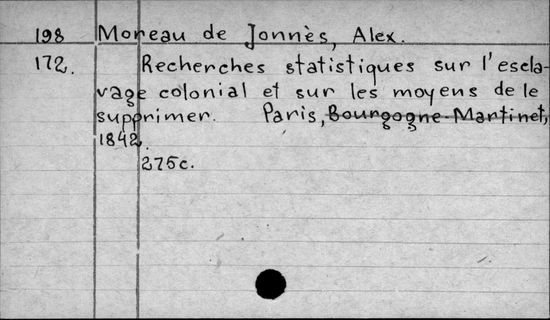 198 Moreau de Jonnès, Alex.
172. Recherches statistiques sur l'escla-
vage colonial et sur les moyens de le
supprimer. Paris, Bourgogne-Martinet,
1842.
275c.